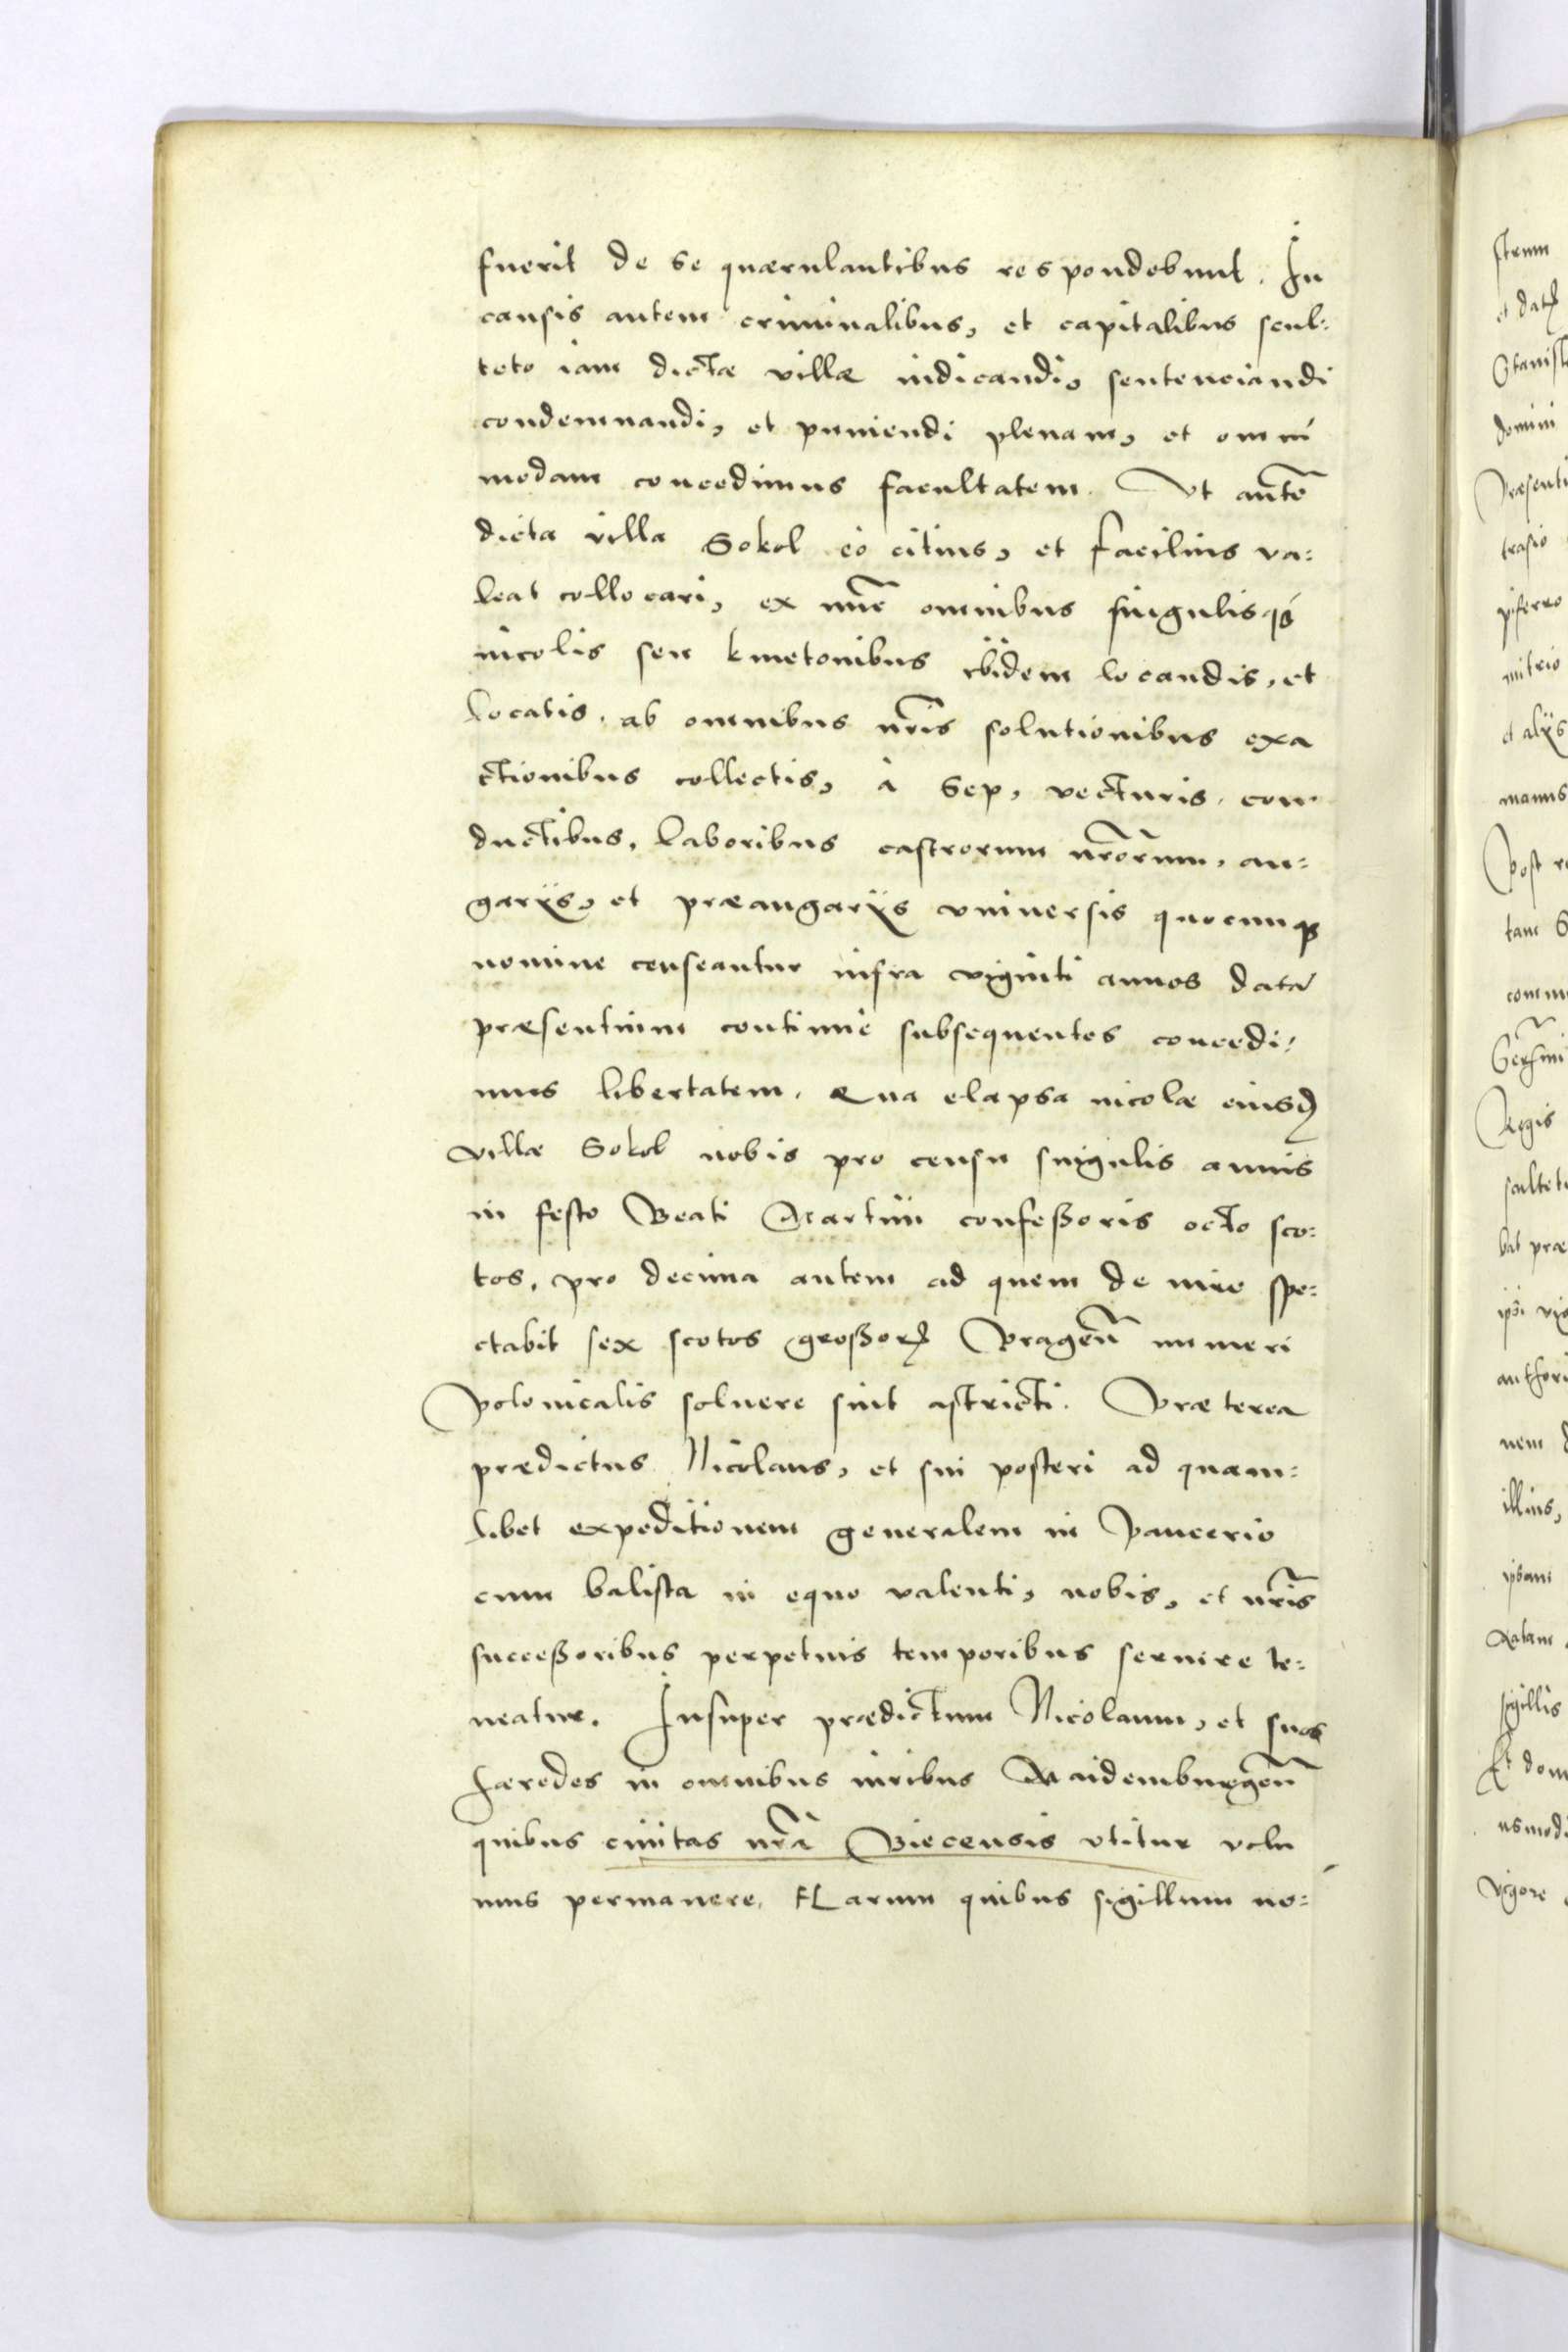 fuerit de se quærulantibus respondebunt. In
causis autem criminalibus, et capitalibus scul:
teto iam dictæ villæ iudicandi, sentenciandi
condemnandi, et puniendi plenam, et omni
modam concedimus facultatem. Vt autē
dicta villa Sokol eò citius, et facilius va:
leat collocari, ex nūc omnibus singulisqȝ
incolis seu kmetonibus ibidem locandis, et
locatis, ab omnibus nr̄is solutionibus exa
ctionibus collectis, à Sep, vecturis, con
ductibus, laboribus castrorum nr̄orum, an:
garijs, et præangarijs vniuersis quocunqȝ
nomine censeantur infra viginti annos data
præsentium continuè subsequentes concedi:
mus libertatem. Qua elapsa incolæ eiusd
villæ Sokol nobis pro censu singulis annis
in festo Beati Martini confeßoris octo sco:
tos, pro decima autem ad quem de iure spe:
ctabit sex scotos großorꝝ Pragen̄ numeri
Polonicalis soluere sint astricti. Præterea
prædictus Nicolaus, et sui posteri ad quam:
libet expeditionem generalem in Pancerio
cum balista in equo valenti, nobis, et nr̄is
succeßoribus perpetuis temporibus seruire te:
neatur. Insuper prædictum Nicolaum, et suos
hæredes in omnibus iuribus Maidemburgen̄
quibus ciuitas nr̄a Biecensis vtitur volu
mus permanere, Harum quibus sigillum no:
strum
Stanisl
domini
mitrio
et alijs
manus
Post
tam
Regis
ipsi
nem
illius,
ipsam
sigillis
Et dom
usmodi
vigore